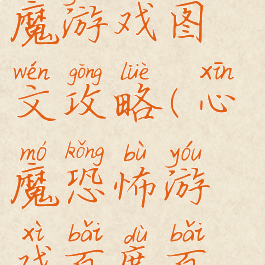 魔游戏图
wén gōng lüè xīn
文攻略(心
mó kǒng bù yóu
魔恐怖游
xì bǎi dù bǎi
戏百度百